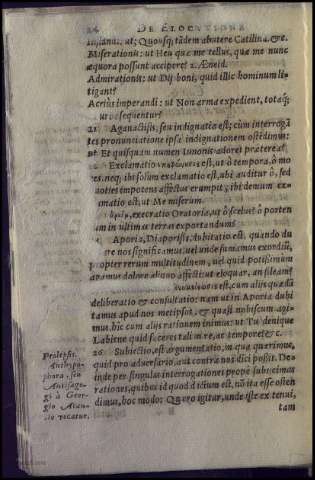 24 DE ELOCVTIONE
Insanai. ut; Quousq; tãdem abutere Catilina. &c.
Miserationis: ut Heu quæ me tellus, quæ me nunc
æquora possunt accipere? 2. Æneid.
Admirationis: ut Dij boni, quid illic hominum li-
tigant?
Acrius imperandi: ut Non arma expedient, totaq;
ut sequentur?
Aganactisis, seu indignatio est; cùm interrogã
tes pronunciatione ipsa indignationem ostẽdimus:
ut Et quisquam numen Iunonis adoret præterea?
Exclamatio est, ut ô tempora, ô mo
res. neq; ibi solùm exclamatio est, ubi auditur ô, sed
quoties impotens affectus erumpit; ibi demum ex-
matio est; ut Me miserum.
execratio Oratoria, ut ô scelus! ô porten
um in ultimas terras exportandum!
Aporia, Diaporisis, dubitatio est, quando du
re nos significamus, uel unde sumamus exordiũ,
propter rerum multitudinem, uel quid potissimum
dicamus dolore aliquo affecti; ut eloquar, an sileam?
est, cum alijs quædã
deliberatio & consultatio: nam ut in Aporia dubi
tamus apud nos metipsos, et quasi nobiscum agi-
mus, hîc cum alijs rationem inimus: ut Tu denique
Labiene quid faceres tali in re, ac tempore? &c.
26 Subiectio, est argumentatio, in qua quærimus,
quid pro aduersario, aut contra nos dici possit. De-
inde per singulas interrogationes propè subijcimus
rationes, quibus id quod dictum est, nõ ita esse osten
dimus, hoc modo: Quæro igitur, unde iste ex tenui,
tam
Prolepsis.
Anthypo-
phora, seu
Antisago-
gè à Geor-
gio Alan-
tio vocatur.